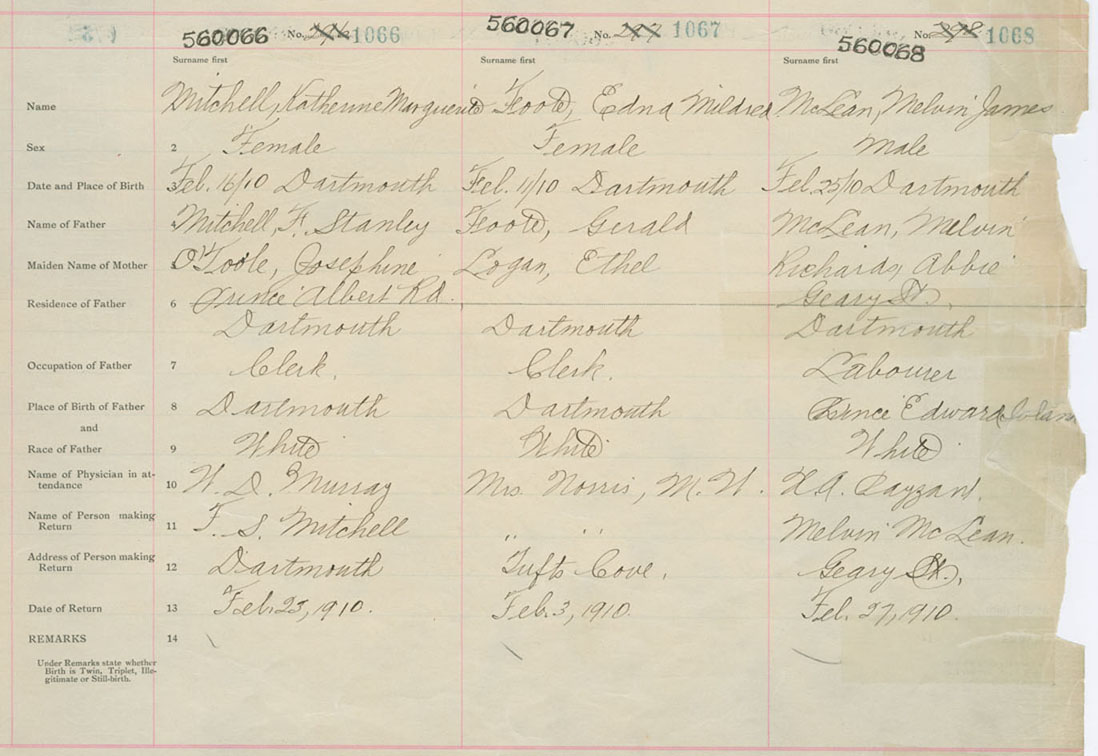 560066 No. 296 1066 560067 No. 297 1067 560068 No. 298 1068
Surname first Surname first Surname first
Name Mitchell, Katherine Marguerite Foote, Edna Mildred McLean, Melvin James
Sex 2 Female Female Male
Date and Place of Birth Feb. 16/10 Dartmouth Feb. 11/10 Dartmouth Feb. 25/10 Dartmouth
Name of Father Mitchell, F. Stanley Foote, Gerald McLean, Melvin
Maiden Name of Mother O'Toole, Josephine Logan, Ethel Richards, Abbie
Residence of Father 6 Prince Albert Rd. Geary St.
Dartmouth Dartmouth Dartmouth
Occupation of Father 7 Clerk. Clerk. Labourer
Place of Birth of Father 8 Dartmouth Dartmouth Prince Edward
and
Race of Father 9 White White White
Name of Physician in at-
tendance 10 W. D. Murray Mrs. Norris, M. W. H.A. Payzant.
Name of Person making
Return 11 F. S. Mitchell " " Melvin McLean.
Address of Person making
Return 12 Dartmouth Tufts Cove. Geary St.
Date of Return 13 Feb. 23, 1910. Feb. 3, 1910. Feb. 27, 1910.
REMARKS 14
Under Remarks state whether
Birth is Twin, Triplet, Ille-
gitimate or Still-birth.